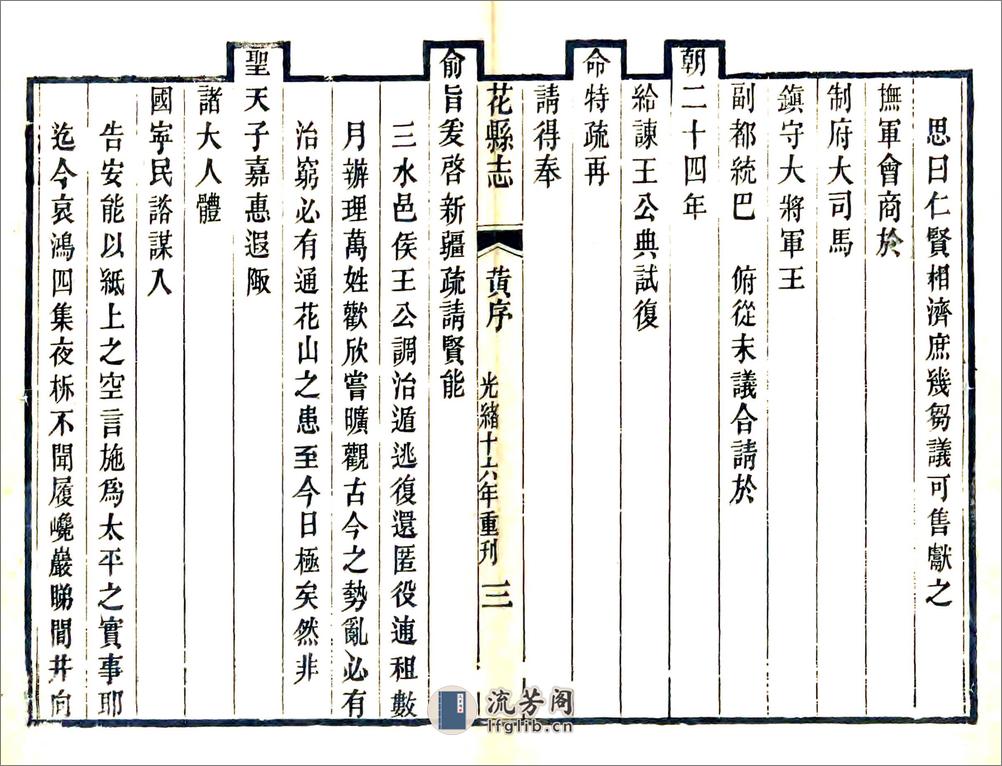 思曰仁賢相濟庶幾芻議可售獻之
撫軍會商於
制府大司馬
鎮守大將軍王
副都統巴　俯從末議合請於
朝二十四年
給諫王公典試復
命特疏再
請得奉
花縣志　黃序　光緒十六年重刊　三
俞旨爰啓新疆疏請賢能
三水邑侯王公調治遁逃復還匿役逋租數
月辦理萬姓歡欣嘗曠觀古今之勢亂必有
治窮必有通花山之患至今日極矣然非
聖天子嘉惠遐陬
諸大人體
國寧民諮謀入
告安能以紙上之空言施爲太平之實事耶
迄今哀鴻四集夜柝不聞履巉巖睇閭井向
流芳阁
lfglib.cn